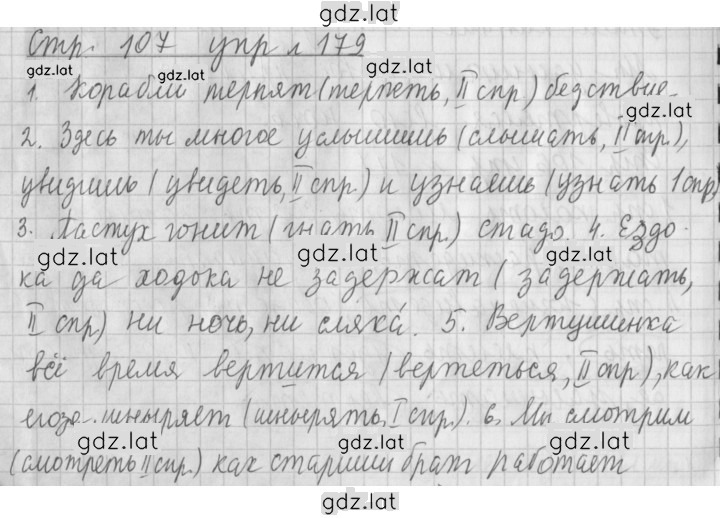 gdz.lat
Стр. 107 упр. 179
gdz.lat gdz.lat gdz.lat
1. Корабли терпят (терпеть, II спр.) бедствие.
gdz.lat
2. Здесь ты многое услышишь (слышать, II спр.),
gdz.lat gdz.lat
увидишь (увидеть, II спр.) и узнаешь (узнать 1 спр.)
3. Пастух гонит (гнать II спр.) стадо. 4. Ездо-
gdz.lat gdz.lat gdz.lat
ка да ходока не задержат (задержать,
II спр.) ни ночь, ни
gdz.lat gdz.lat
5. Вертушинка
всё время вертится (вертеться, II спр.), как
gdz.lat gdz.lat
егоза шныряет (шнырять, I спр.). 6. Мы смотрим
gdz.lat gdz.lat gdz.lat
(смотреть II спр.) как старший брат работает
gdz.lat